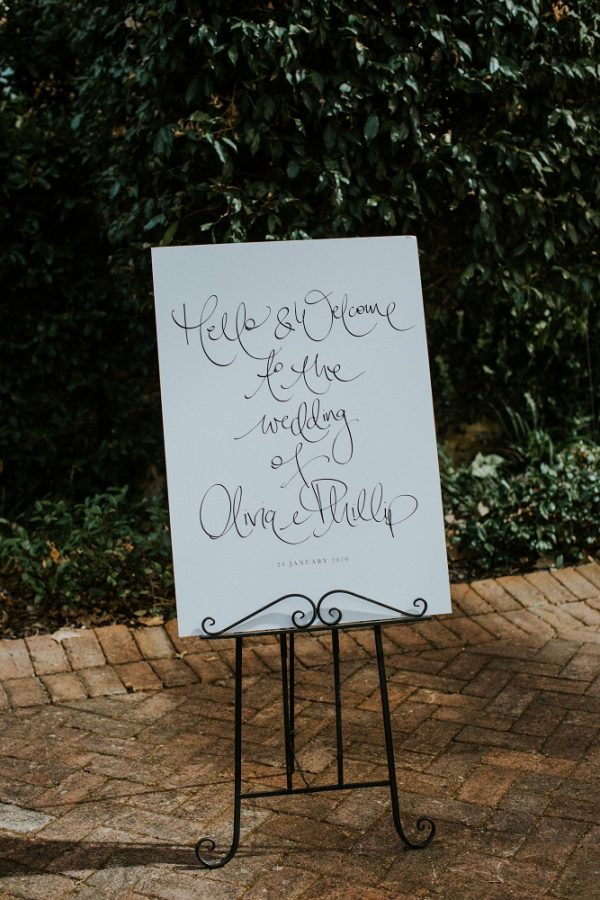 Hello & Welcome
to the
wedding
of
Olivia & Phillip
23 JANUARY 2016